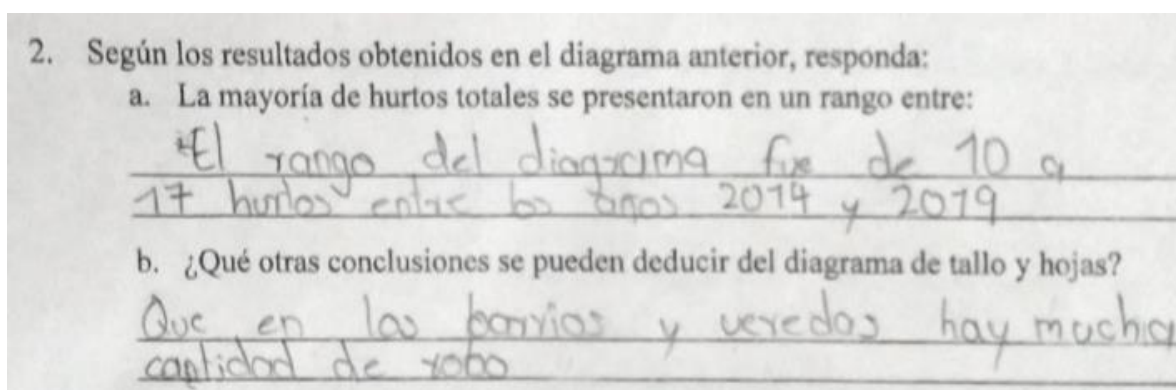 2. Según los resultados obtenidos en el diagrama anterior, responda:
a. La mayoría de hurtos totales se presentaron en un rango entre:
El rango del diagrama fue de 10 a
17 hurtos entre los años 2014 y 2019
b. ¿Qué otras conclusiones se pueden deducir del diagrama de tallo y hojas?
Que en los barrios y veredas hay mucha
cantidad de robo